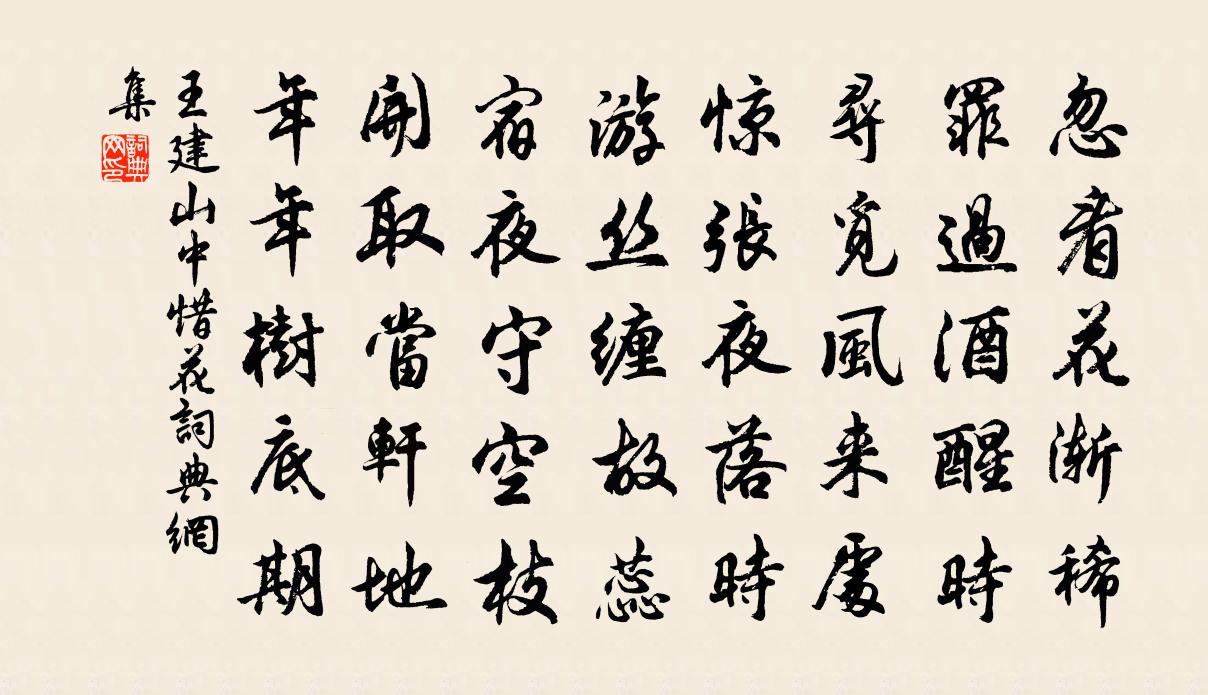 忽看花渐稀
罪過酒醒時
尋覓風来處
惊張夜落時
游丝缠故蕊
宿夜守空枝
開取當軒地
年年樹底期
王建山中惜花詞典網
集
詞典
网印